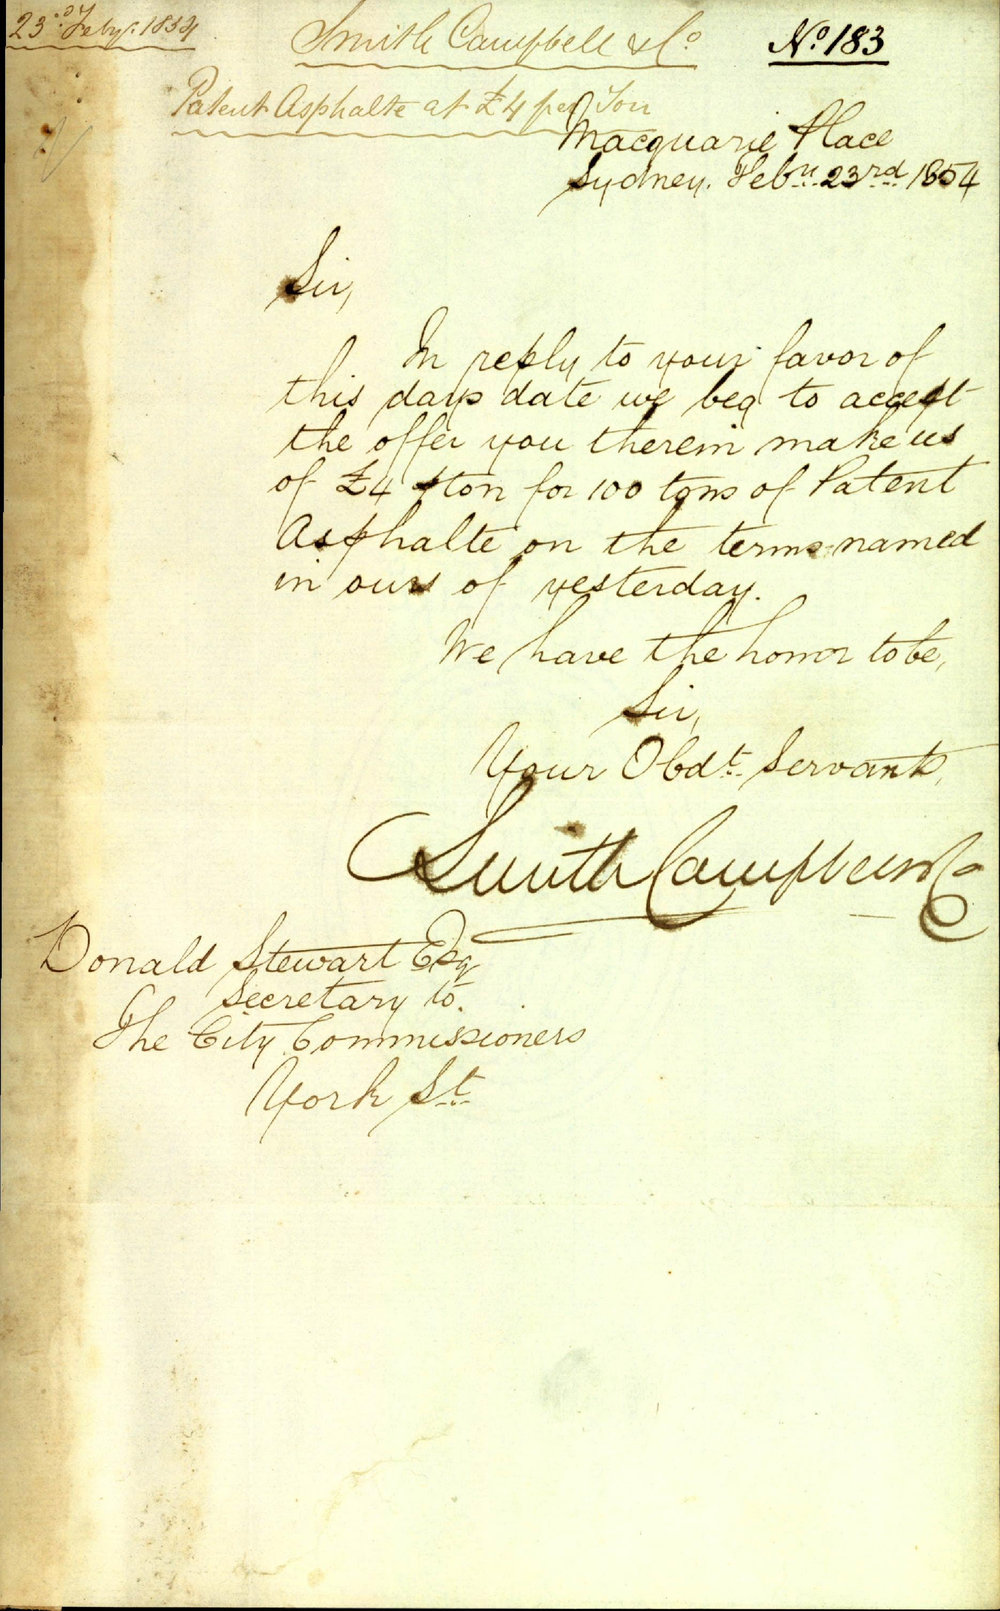 23rd Feby. 1854
Smith Campbell & Co
No 183
Patent Asphalte at £4 per Ton
Macquarie Place
Sydney. Feby 23rd 1854
Sir,
In reply to your favor of
this days date we beg to accept
the offer you therein make us
of £4 pton for 100 tons of Patent
Asphalte on the terms named
in ours of yesterday.
We have the honor to be,
Sir,
Your Obdt. Servants,
Smith Campbell & Co
Donald Stewart Esq
Secretary to.
The City Commissioners
York St.